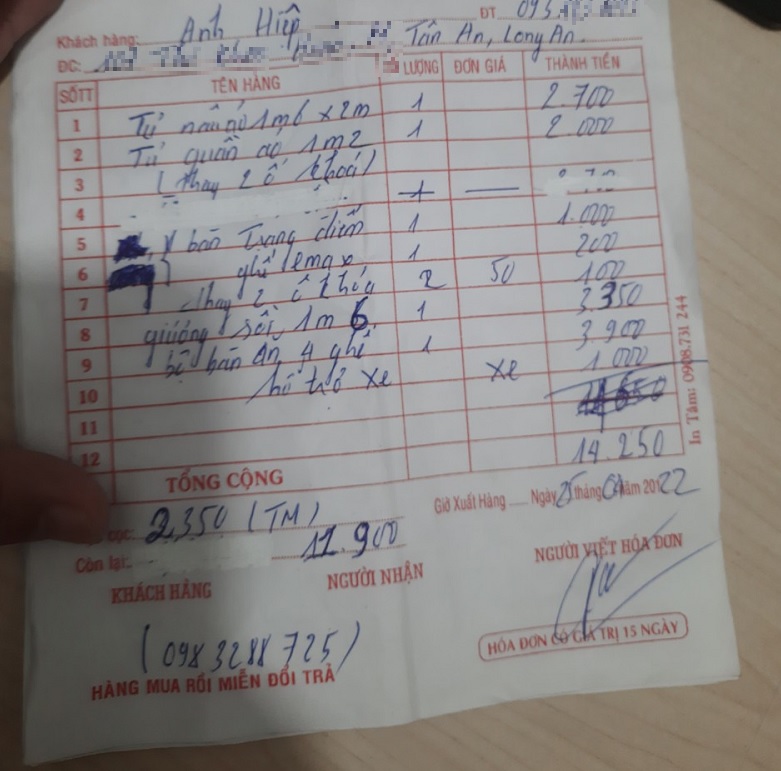 Khách hàng: Anh Hiệp ĐT 093
ĐC: Tân An, Long An.
SỐTT TÊN HÀNG LƯỢNG ĐƠN GIÁ THÀNH TIỀN
1 Tủ nâu áo 1m6 x 2m 1 2.700
2 Tủ quần áo 1m2 1 2.000
3 (thay 2 ổ khoá)
4 1
5 bàn trang điểm 1 1.000
6 ghế 1 200
7 thay 2 ổ khóa 2 50 100
8 giường sồi 1m6 1 3.350
9 bộ bàn ăn 4 ghế 1 3.900
10 hỗ trợ xe xe 1.000
11
12 14.250
TỔNG CỘNG
cọc: 2,350 (TM)
Giờ Xuất Hàng Ngày 25 tháng 04 năm 20 22
Còn lại: 11.900
KHÁCH HÀNG NGƯỜI NHẬN NGƯỜI VIẾT HÓA ĐƠN
(0983288725)
HÓA ĐƠN CÓ GIÁ TRỊ 15 NGÀY
HÀNG MUA RỒI MIỄN ĐỔI TRẢ
In Tâm: 0908.731 244